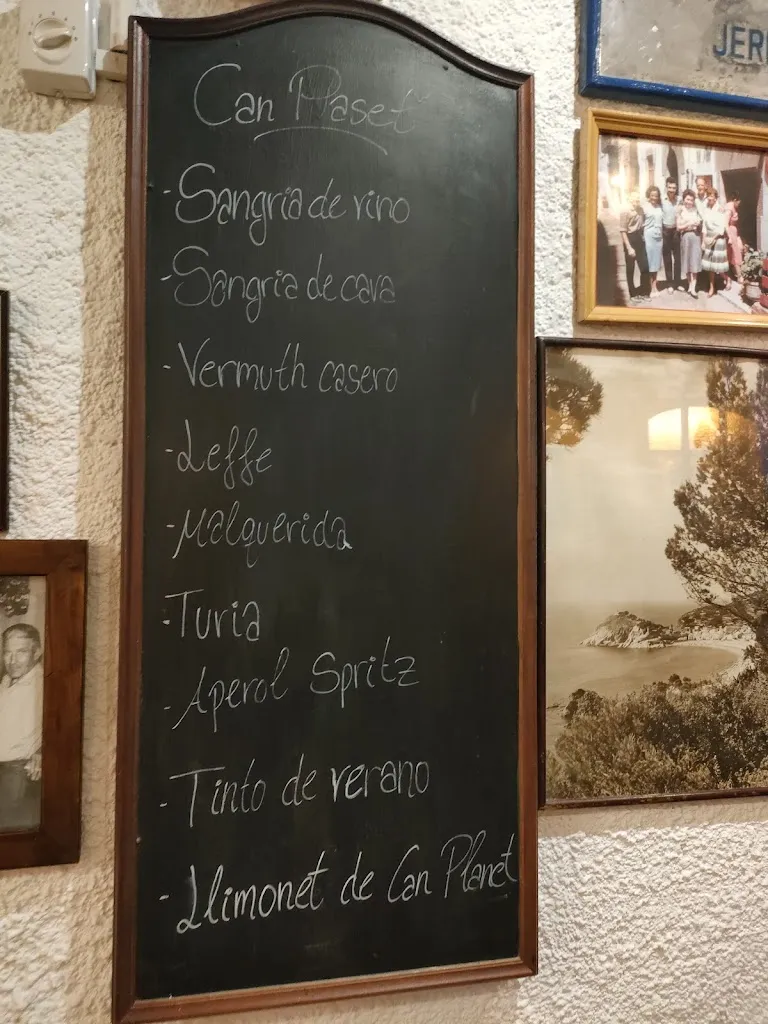 Can Paset
-Sangria de vino
-Sangria de cava
-Vermuth casero
-Leffe
-Malquerida
-Turia
-Aperol Spritz
-Tinto de verano
-Llimonet de Can Planet
JER